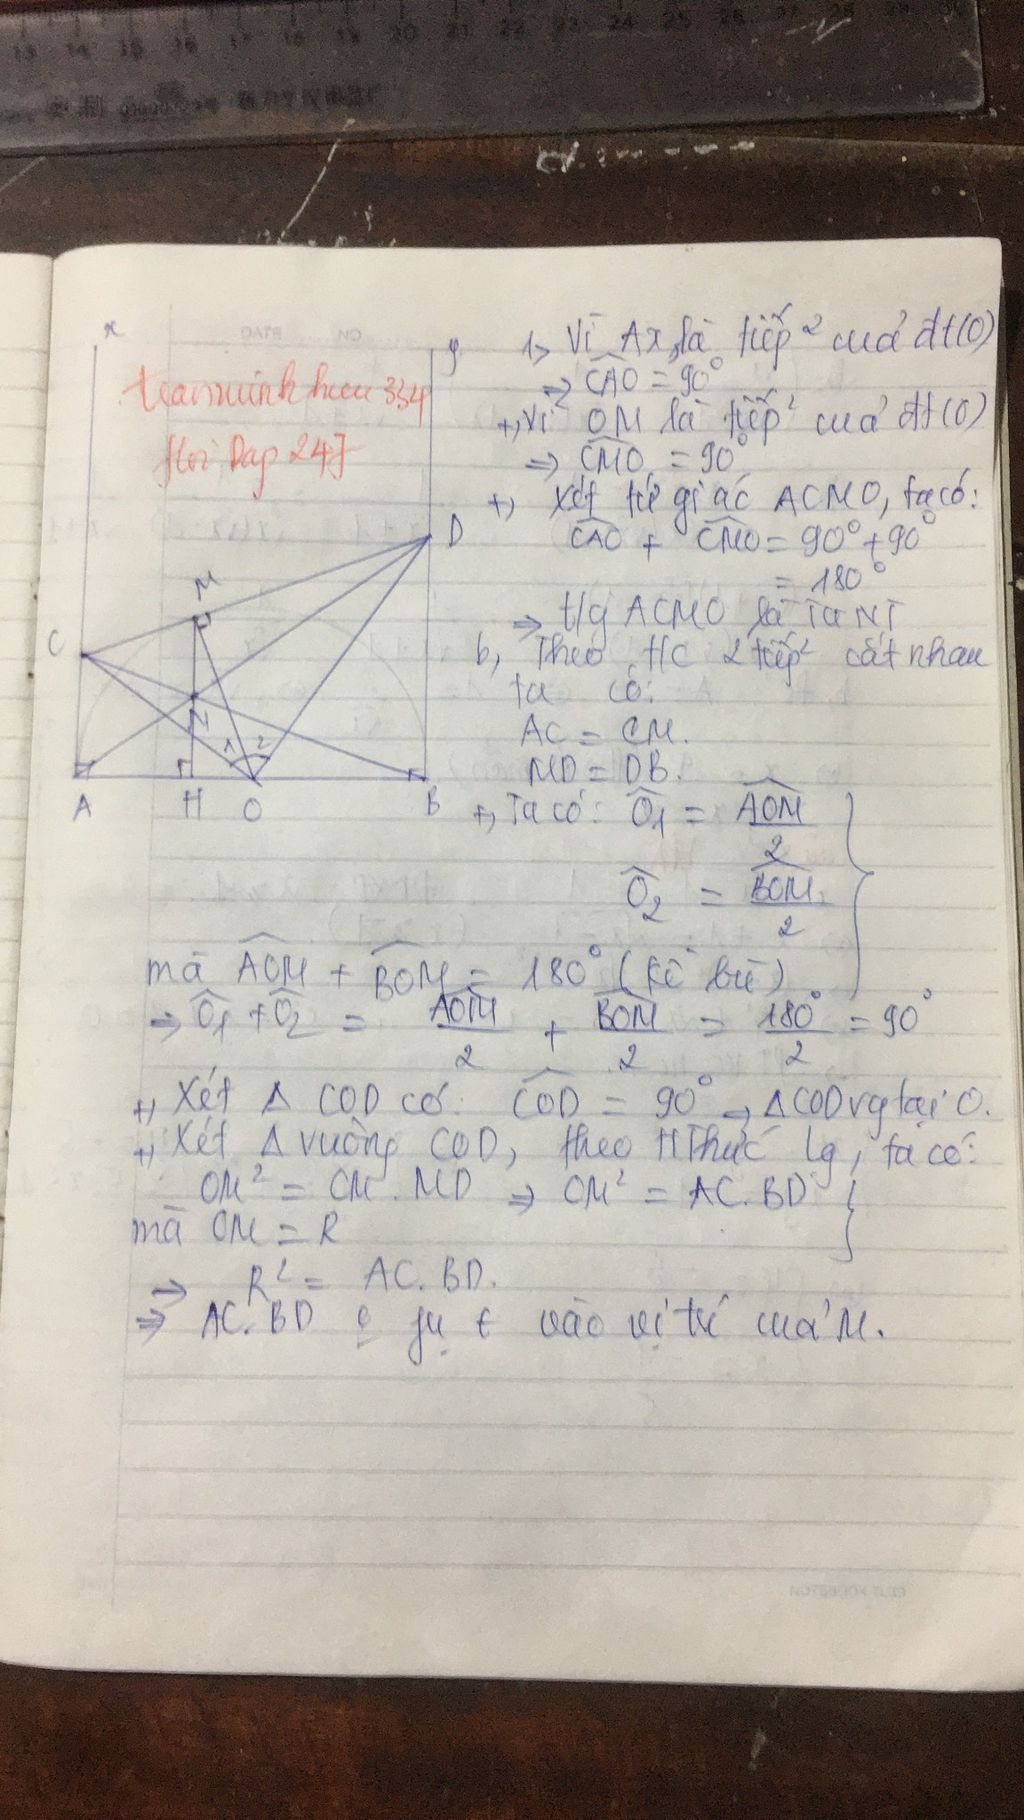 13 14 15 16 17 18 19 20 21 22 23
x
y
Hoi Dap 247
D
M
C
N
1 2
A H O B
1, Vì Ax là tiếp² của đt(O)
⇒ CAO = 90°
+, Vì OM là tiếp² của đt(O)
⇒ CMO = 90°
+, Xét tứ giác ACMO, ta có:
CAO + CMO = 90° + 90°
= 180°
⇒ t/g ACMO là TGNT
b, Theo t/c 2 tiếp² cắt nhau
ta có:
AC = CM.
MD = DB.
+, Ta có: O1 = AOM/2
O2 = BOM/2
mà AOM + BOM = 180° (kề bù)
⇒ O1 + O2 = AOM/2 + BOM/2 = 180°/2 = 90°
+, Xét Δ COD có: COD = 90° → ΔCOD vg tại O.
+, Xét Δ vuông COD, theo HThức lg, ta có:
OM² = CM . MD ⇒ OM² = AC.BD
mà OM = R
⇒ R² = AC.BD.
⇒ AC.BD vào vị trí của M.